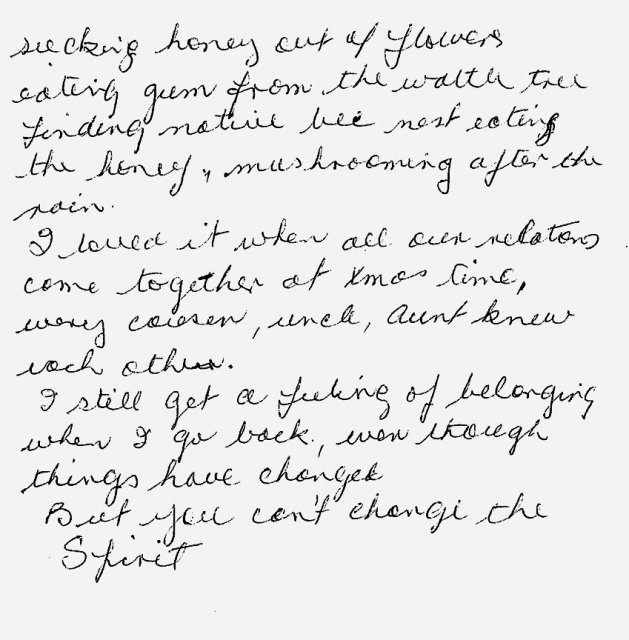 sucking honey out of flowers
eating gum from the wattle tree
finding native bee nest eating
the honey, mushrooming after the
rain.
I loved it when all our relatons
come together at Xmas time,
every cousen, uncle, Aunt knew
each other.
I still get a feeling of belonging
when I go back, even though
things have changed
But you can't change the
Spirit